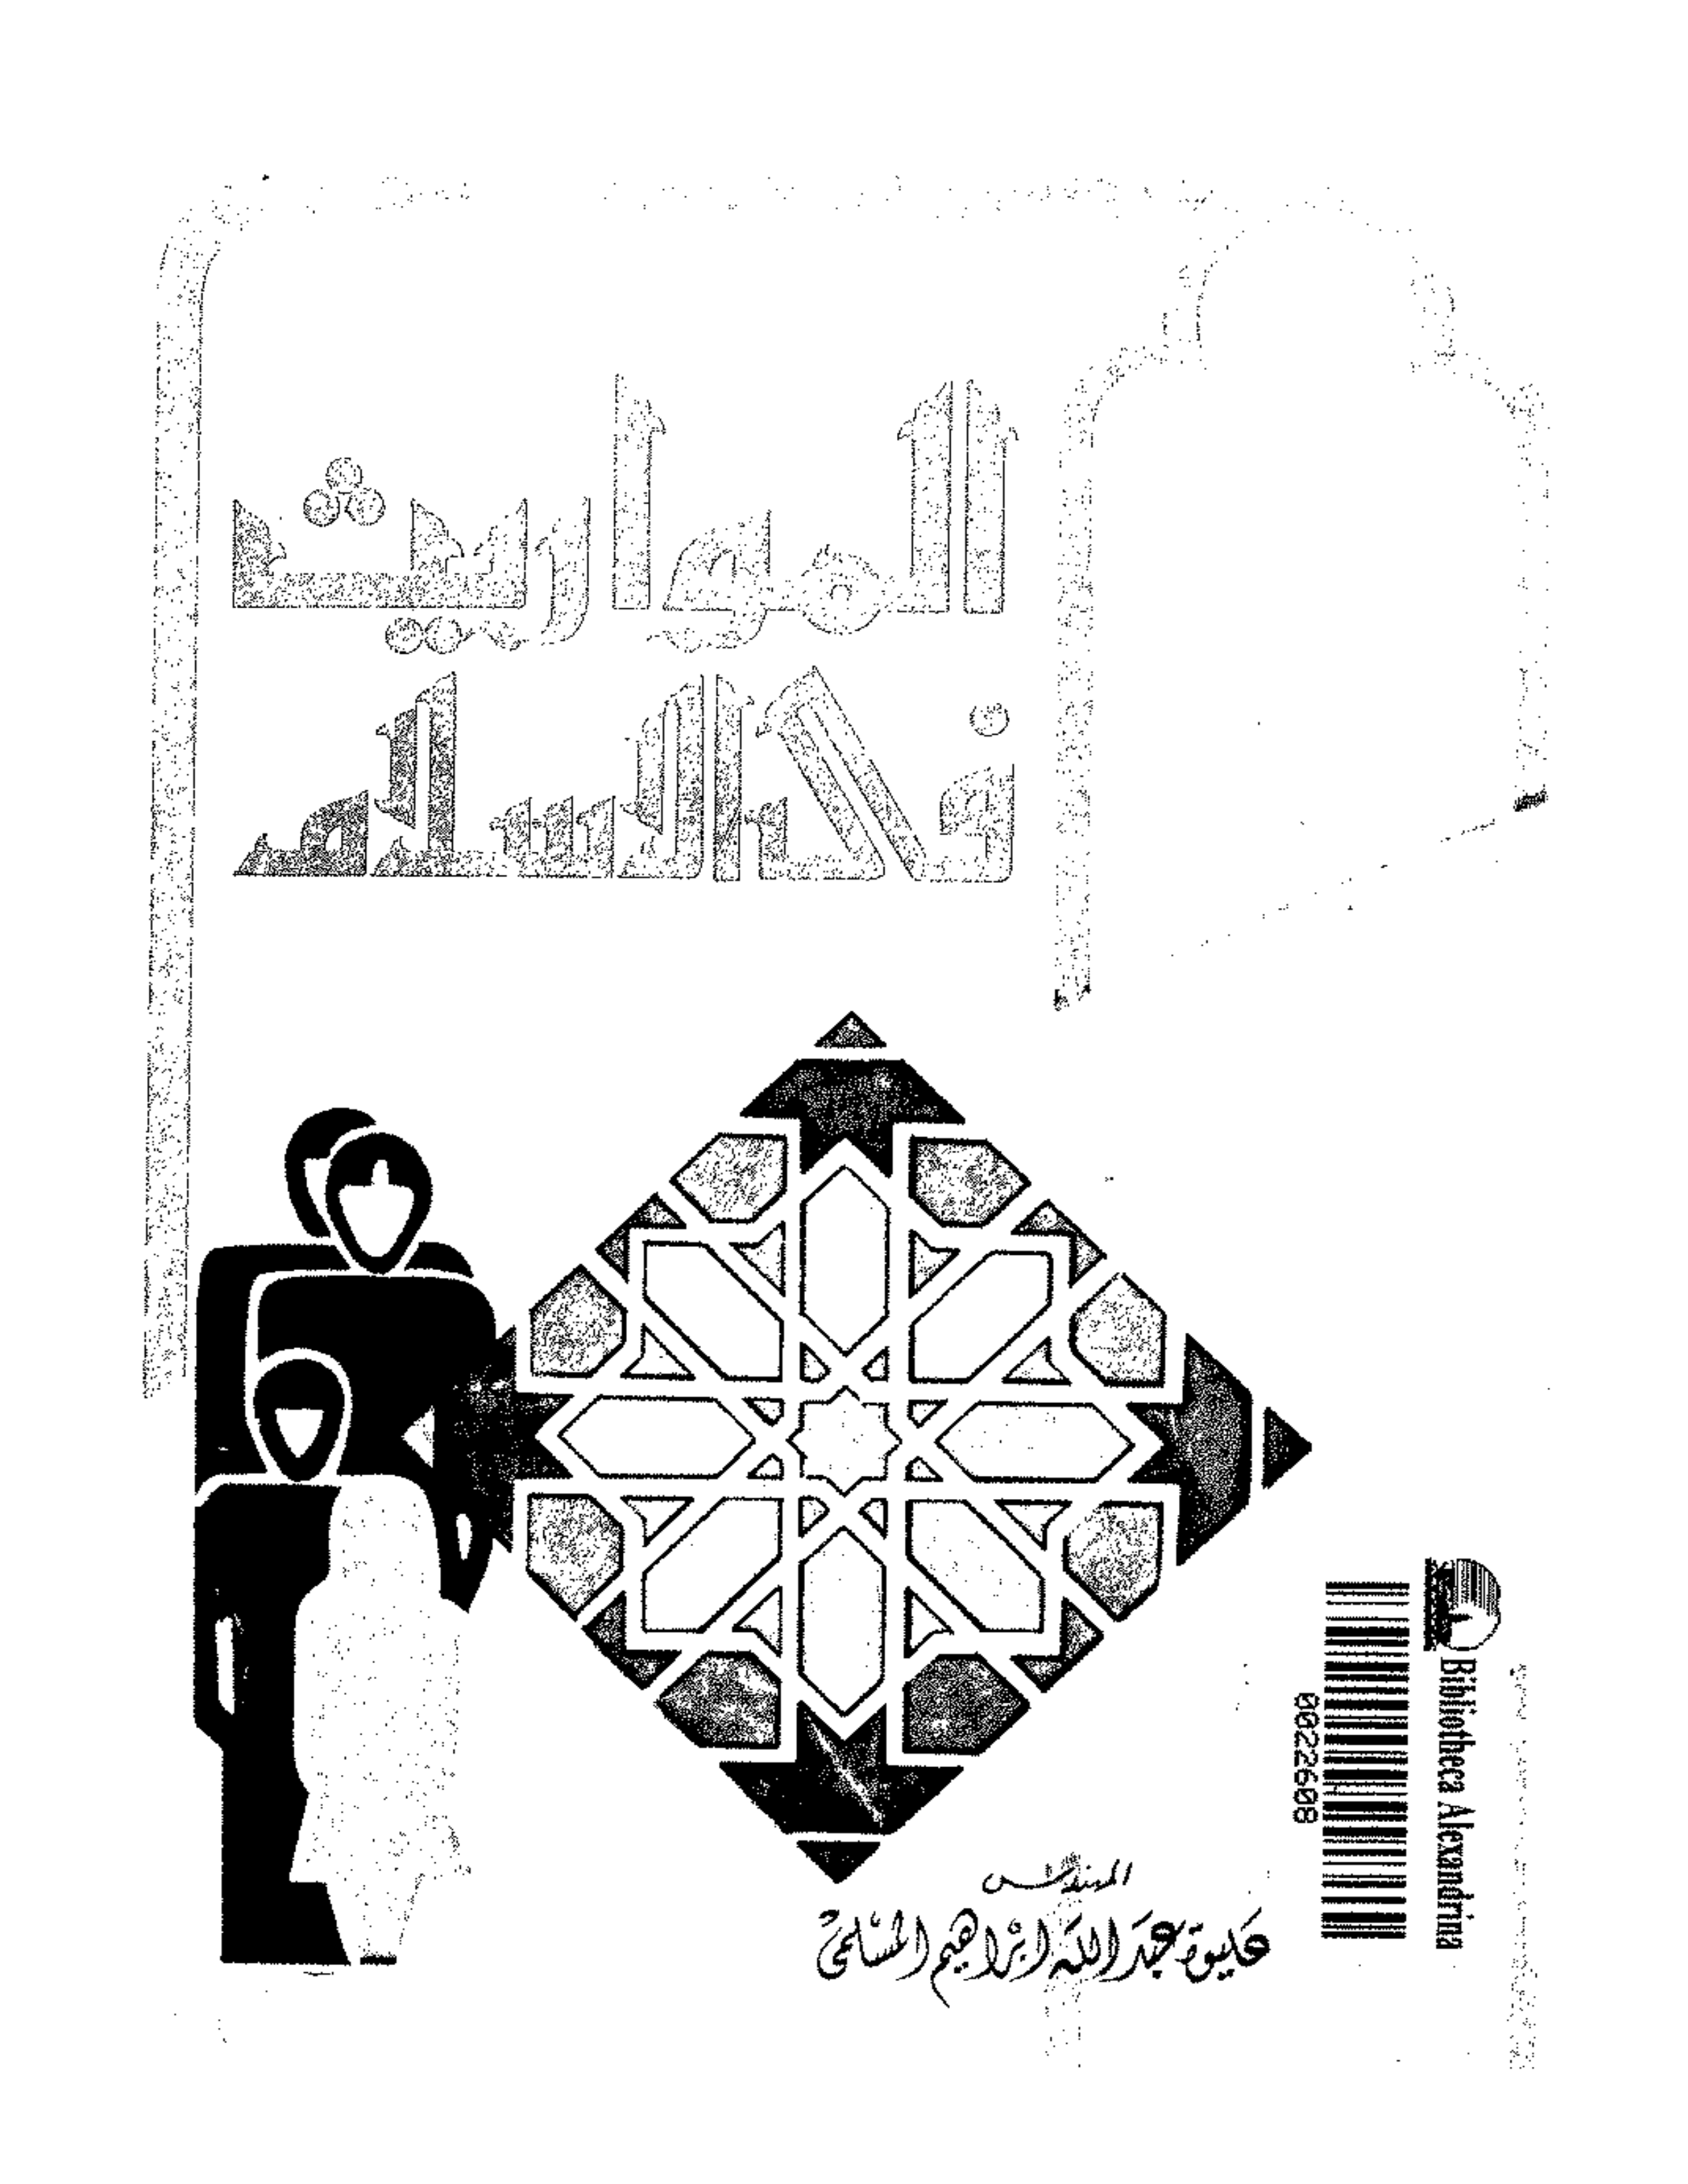 المواريث
في الإسلام
المهندس
عليوة عبد الله ابراهيم المسلمى
Bibliotheca Alexandrina
0022608